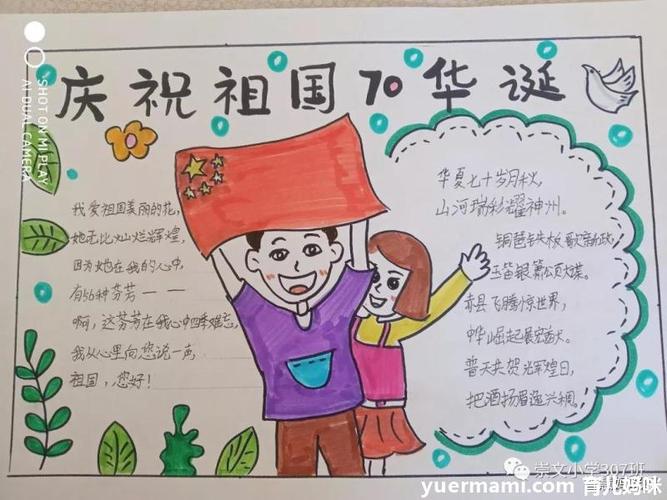 庆祝祖国70华诞
我爱祖国美丽的花,
她无比灿烂辉煌,
因为她在我的心中,
有56种芬芳一一
啊,这芬芳在我心中四季难忘,
我从心里向您说一声,
祖国,您好!
华夏七十岁月秋,
山河瑞彩耀神州。
铜琶铁板歌新政,
玉笛银箫颂大谋。
赤县飞腾惊世界,
中华崛起展宏猷。
普天共贺辉煌日,
把酒扬眉逸兴稠。
SHOT ON MI PLAY
AI DUAL CAMERA
崇文小学307班
yuermami.com 育儿妈咪